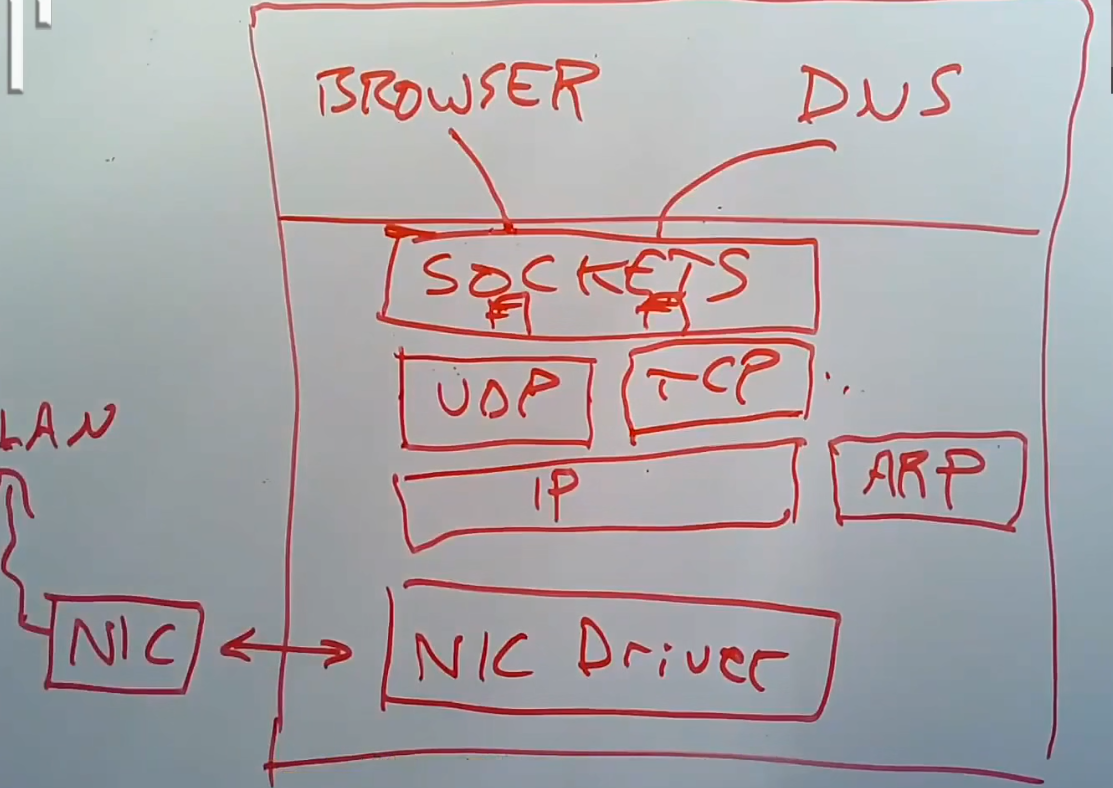 BROWSER DNS
SOCKETS
UDP TCP
LAN
IP ARP
NIC NIC Driver